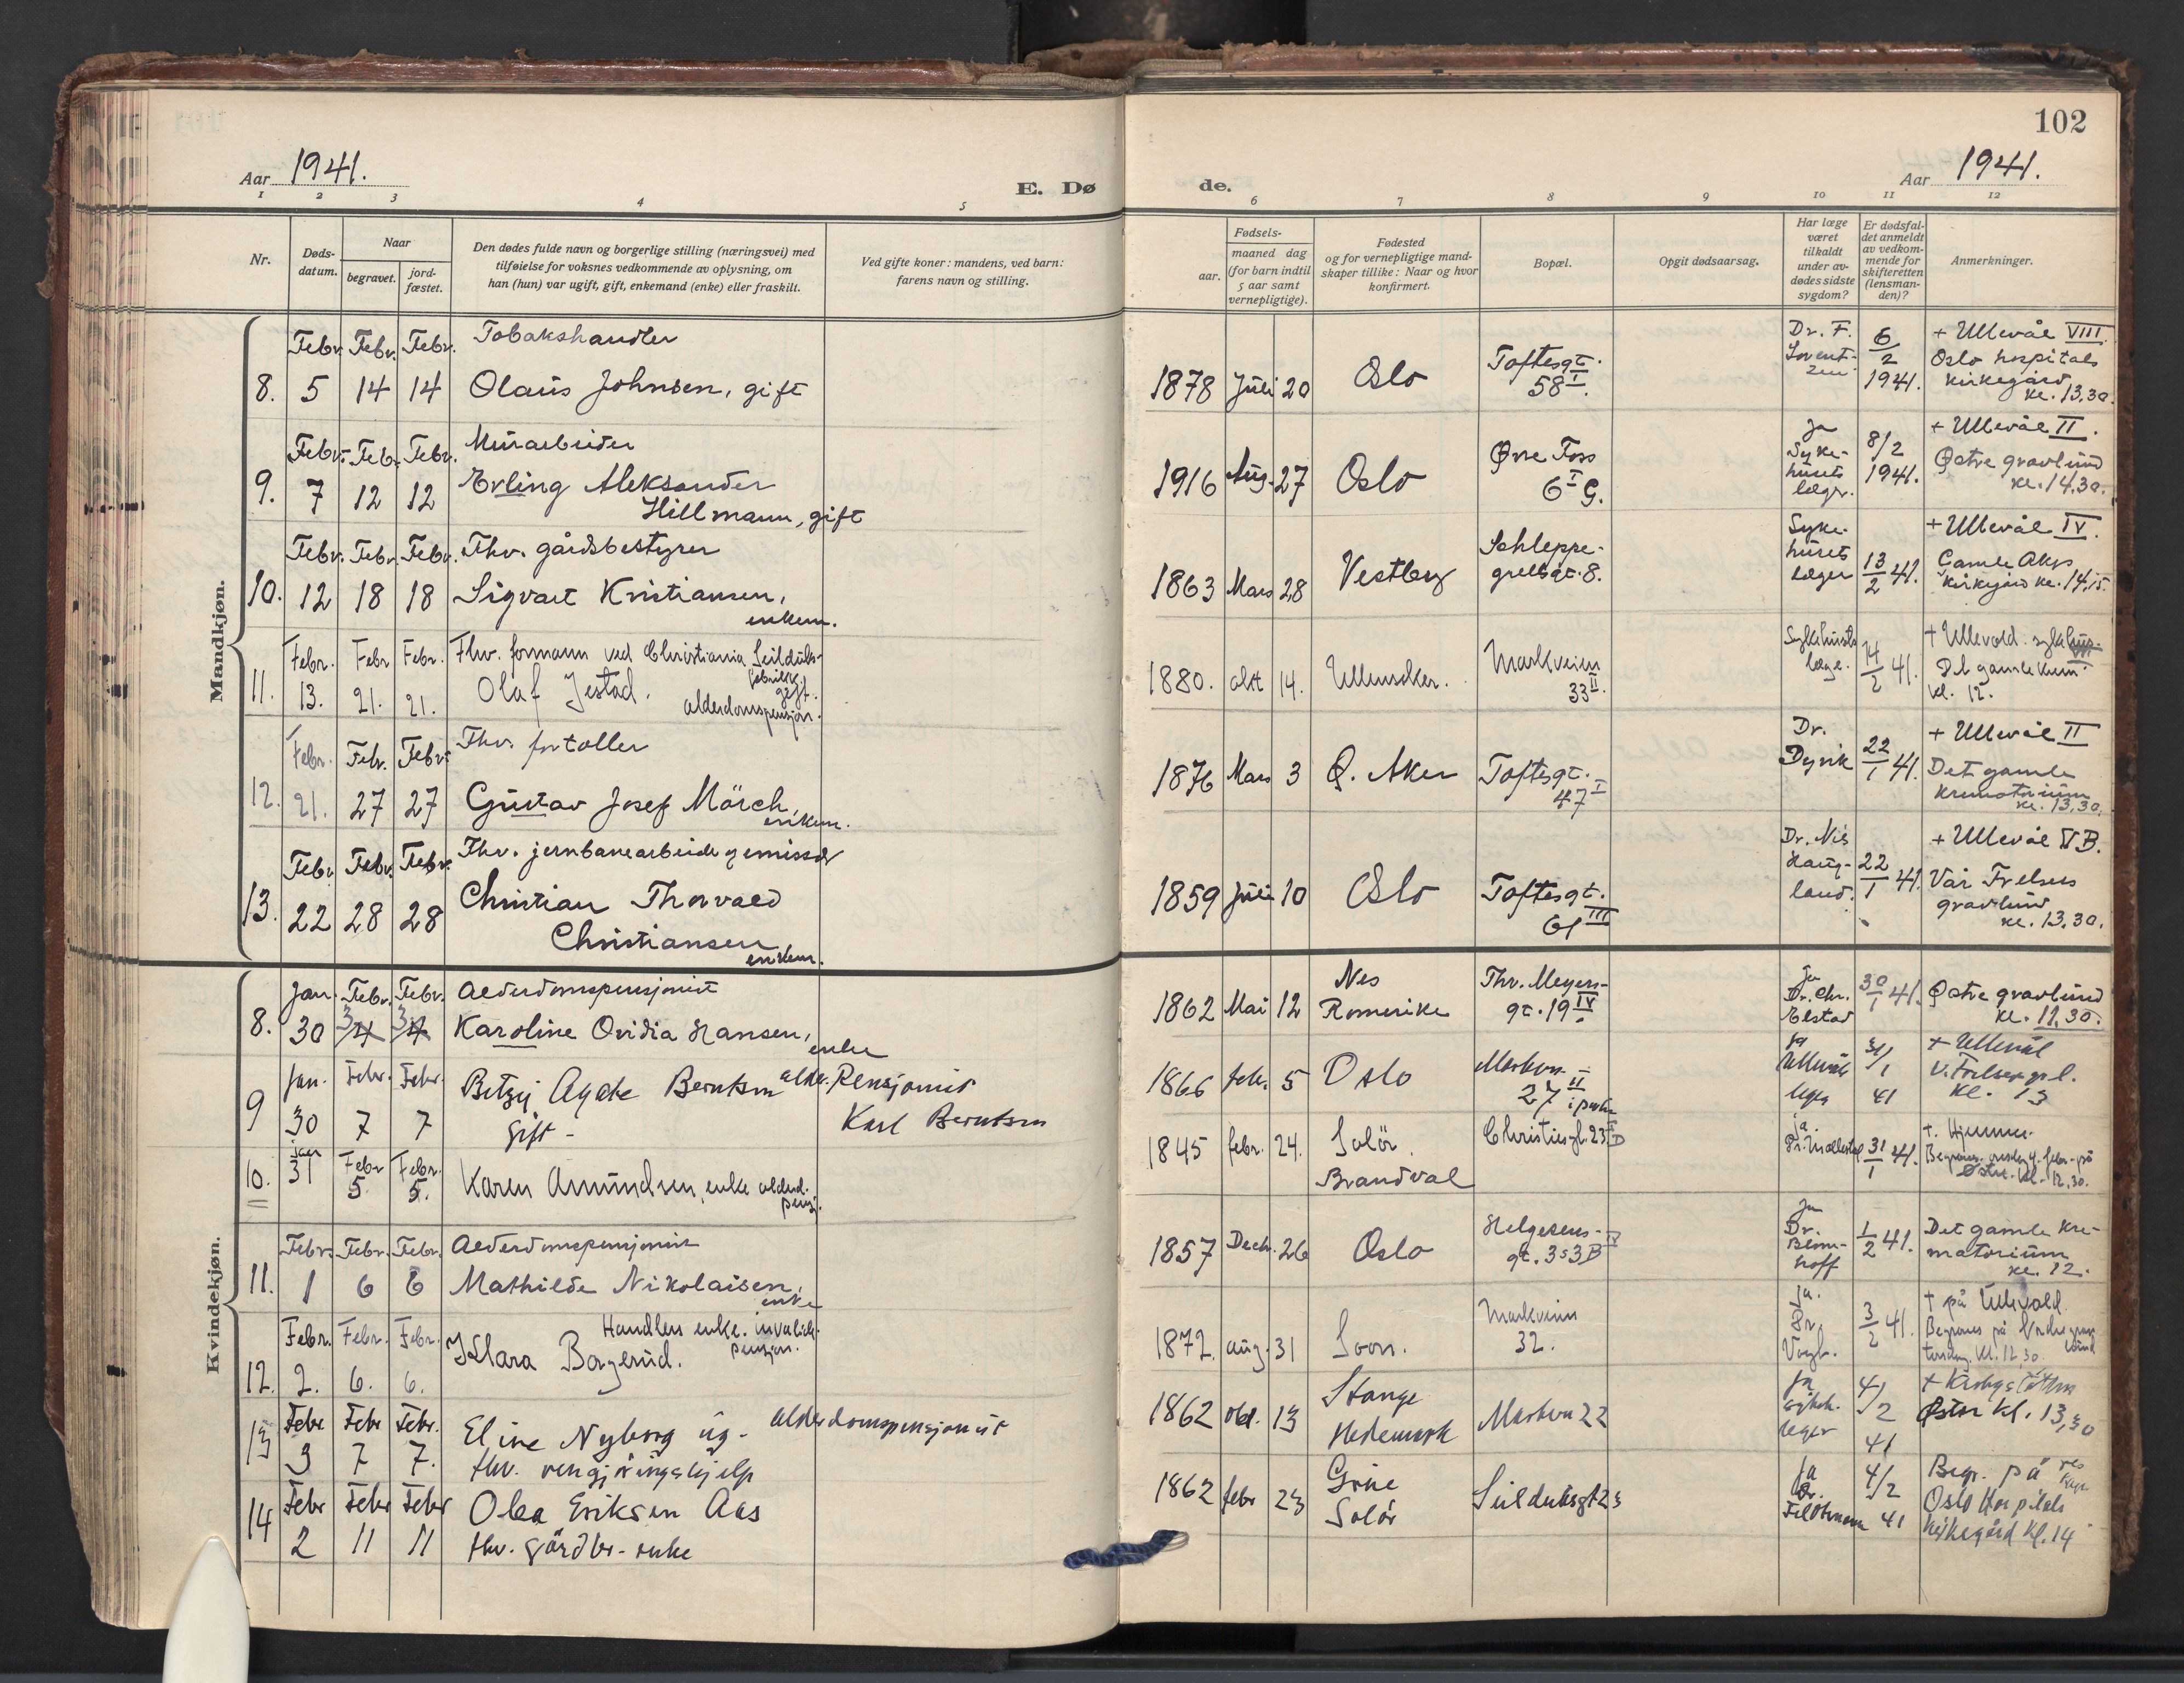 102
Aar 1941.
E. Dø
de.
Aar 1941.
1 2 3 4 5 6 7 8 9 10 11 12
Nr.
Døds-
datum.
Naar
begravet.
jord-
fæstet.
Den dødes fulde navn og borgerlige stilling (næringsvei) med
tilføielse for voksnes vedkommende av oplysning, om
han (hun) var ugift, gift, enkemand (enke) eller fraskilt.
Ved gifte koner: mandens, ved barn:
farens navn og stilling.
Fødsels-
aar.
maaned dag
(for barn indtil
5 aar samt
vernepligtige).
Fødested
og for vernepligtige mand-
skaper tillike: Naar og hvor
konfirmert.
Bopæl.
Opgit dødsaarsag.
Har læge
været
tilkaldt
under av-
dødes sidste
sygdom?
Er dødsfal-
det anmeldt
av vedkom-
mende for
skifteretten
(lensman-
den)?
Anmerkninger.
Mandkjøn.
Febr. Febr. Febr. Tobakshandler
8. 5 14 14 Olaus Johnsen, gift
1878 Juli 20 Oslo
Toftesgt.
58 I.
Dr. F.
6/2
1941.
+ Ullevål VIII.
Oslo hospitals
kirkegård
kl. 13,30.
Febr. Febr. Febr. Murarbeider
9. 7 12 12 Erling Aleksander
Hillmann, gift
1916 Aug. 27 Oslo
Øvre Foss
6 I G.
Ja
Syke-
husets
læger.
8/2
1941.
+ Ullevål II.
Østre gravlund
kl. 14,30.
Febr. Febr. Febr. Fhv. gårdsbestyrer
10. 12 18 18 Sigvart Kristiansen,
enkem.
1863 Mars 28 Vestby
Schleppe-
grellsgt. 8.
Syke-
husets
læger
13/2 41.
+ Ullevål IV.
Gamle Aker
kirkegård kl. 14,15.
Febr. Febr. Febr. Fhv. formann ved Christiania Seilduks-
fabrikk.
11. 13. 21. 21. Olaf Jestad. gift.
alderdomspensjon.
1880. okt 14. Ullensaker.
Markveien
33 II.
Sykehusets
læge.
14/2 41.
+ Ullevold sykehus
Det gamle krem.
kl. 12.
Febr. Febr. Febr. Fhv. fortoller
12. 21. 27 27 Gustav Josef Mörch,
enkem.
1876 Mars 3 Ø. Aker
Toftesgt.
47 I
Dr.
Dyvik
22/1 41.
+ Ullevål II
Det gamle
krematorium
kl. 13,30.
Febr. Febr. Febr. Fhv. jernbanearbeider og emissær
13. 22 28 28 Christian Thorvald
Christiansen,
enkem.
1859 Juli 10 Oslo
Toftesgt.
61 III
Dr. Nils
Haug-
land.
22/1 41.
+ Ullevål V B.
Vår Frelsers
gravlund
kl. 13,30.
Kvindekjøn.
Jan. Febr. Febr. Alderdomspensjonist
8. 30 3 4 3 4 Karoline Ovidia Hansen,
enke
1862 Mai 12
Nes
Romerike
Thv. Meyers-
gt. 19 IV
Ja
Dr. Chr.
Elstad
30/1 41.
Østre gravlund
kl. 11,30.
Jan. Febr. Febr.
9 30 7 7 Betzy Agate Berntsen alder. Pensjonist
gift - Karl Berntsen
1866 febr. 5 Oslo
Markvn.
27 II
Ja
Ullevål
læger
31/1
41
+ Ullevål
V. Frelsers grl.
Kl. 13
jan Febr Febr.
10. 31 5. 5. Karen Amundsen, enke alderd.
pensj.
1845 febr. 24.
Solör.
Brandval
Christiesgt. 23
ja.
31/1 41.
+. Hjemme.
Begraves onsdag 4. febr. på
Østre. kl. 12,30.
Febr. Febr. Febr. Alderdomspensjonist
11. 1 6 6 Mathilde Nikolaisen,
enke
1857 Decb. 26 Oslo
Helgesens-
gt. 353 B IV
Ja
Dr.
1/2 41.
Det gamle kre-
matorium
kl. 12.
Febr. Febr. Febr. Handlers enke. invalide-
pensjon.
12. 2. 6. 6. Klara Borgerud.
1872. aug. 31 Soon.
Markveien
32.
ja.
Dr.
Vogt.
3/2 41.
+ på Ullevold.
Begraves på Nordre grav
lund
torsdag. Kl. 12,30.
Febr Febr Febr.
13 3 7 7. Eline Nyborg ug- alderdomspensjonist
fhv. rengjøringshjelp
1862 okt. 13
Stange
Hedemark
Markvn 22
Ja
sykeh.
leger
4/2
41
+ Krohgstötten
Østre kl. 13,30
Febr Febr Febr
14 2 11 11 Olea Eriksen Aas
fhv. gårdbr- enke
1862 febr 23
Grue
Solör
Seilduksgt 23
Ja
Dr.
Feldtmann
4/2
41
Begr. på
Oslo Hospitals
Kirkegård Kl. 14